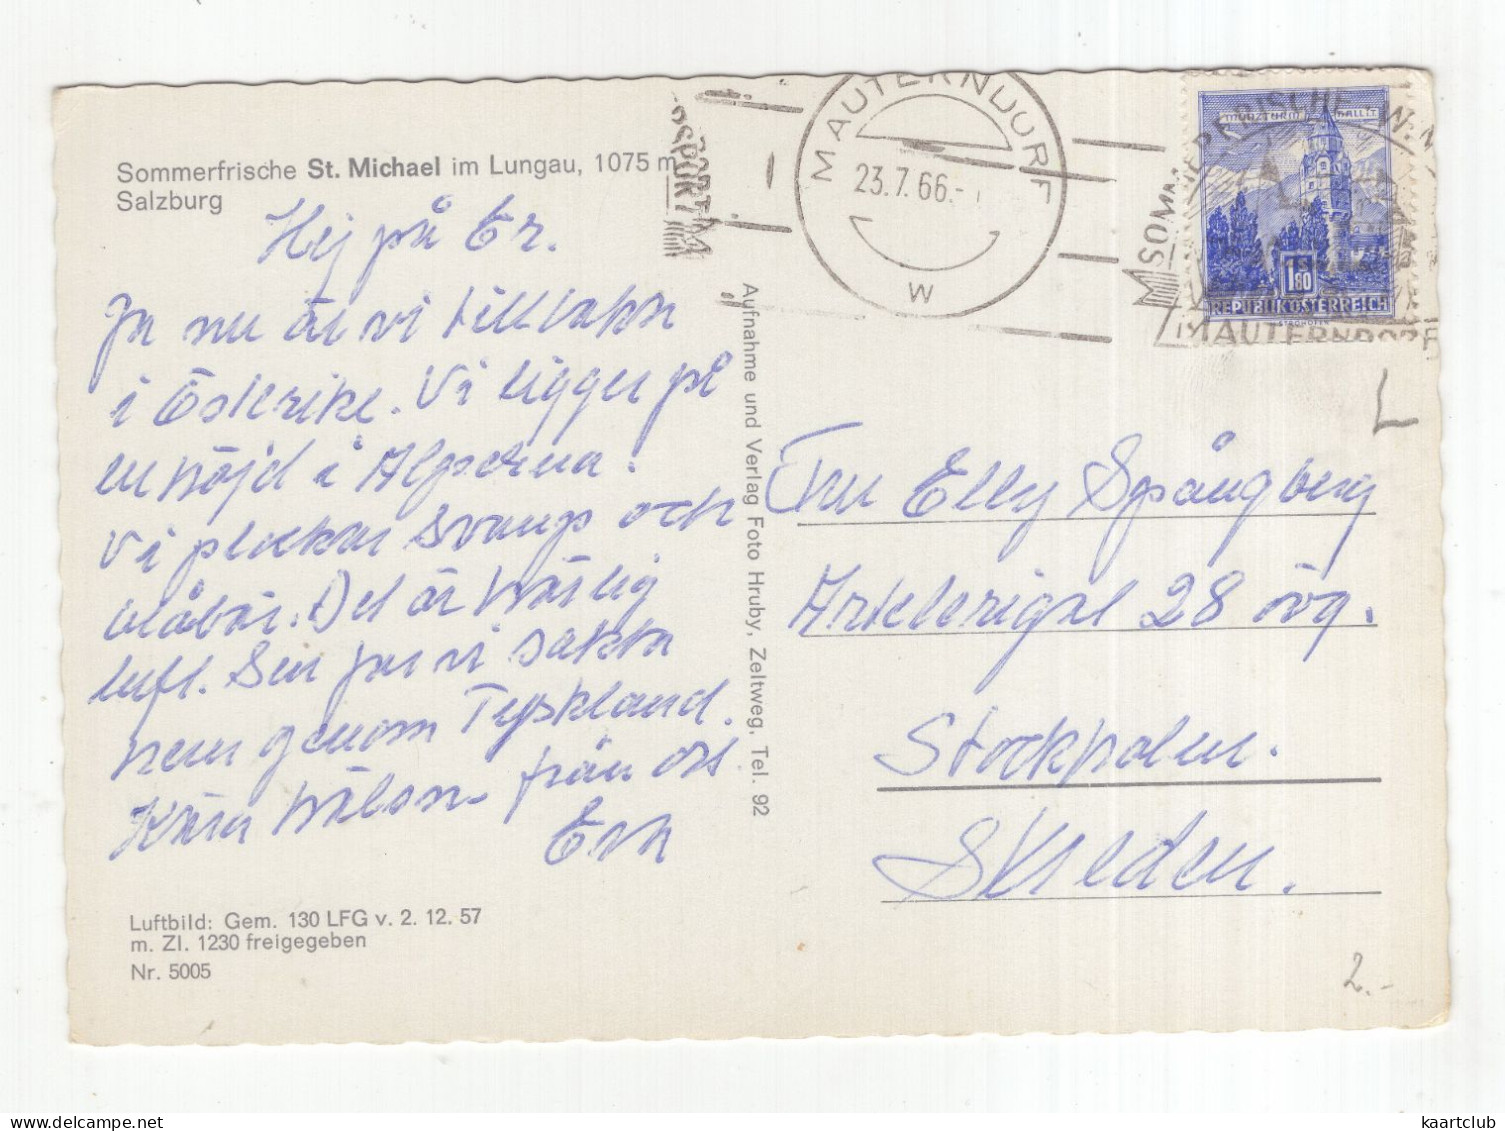 Sommerfrische St. Michael im Lungau, 1075 m
Salzburg
Hej på Er.
Ja nu är vi tillbaka
i Österike. Vi ligger på
en höjd i Alperna.
Vi plockar svamp och
blåbär. Det är härlig
luft. Sen far vi sakta
hem genom Tyskland.
Kära hälsn från oss
Luftbild: Gem. 130 LFG v. 2. 12. 57
m. Zl. 1230 freigegeben
Nr. 5005
Aufnahme und Verlag Foto Hruby, Zeltweg, Tel. 92
MAUTERNDORF
23.7.66.-
W
SPORT IM
SOMMERFRISCHE
MAUTERNDORF
MÜNZTURM HALL i.T.
1.80
REPUBLIK ÖSTERREICH
Fru Elly Spångberg
Artellerigat 28 övg.
Stockholm.
Sweden.
L
2.-
kaartclub